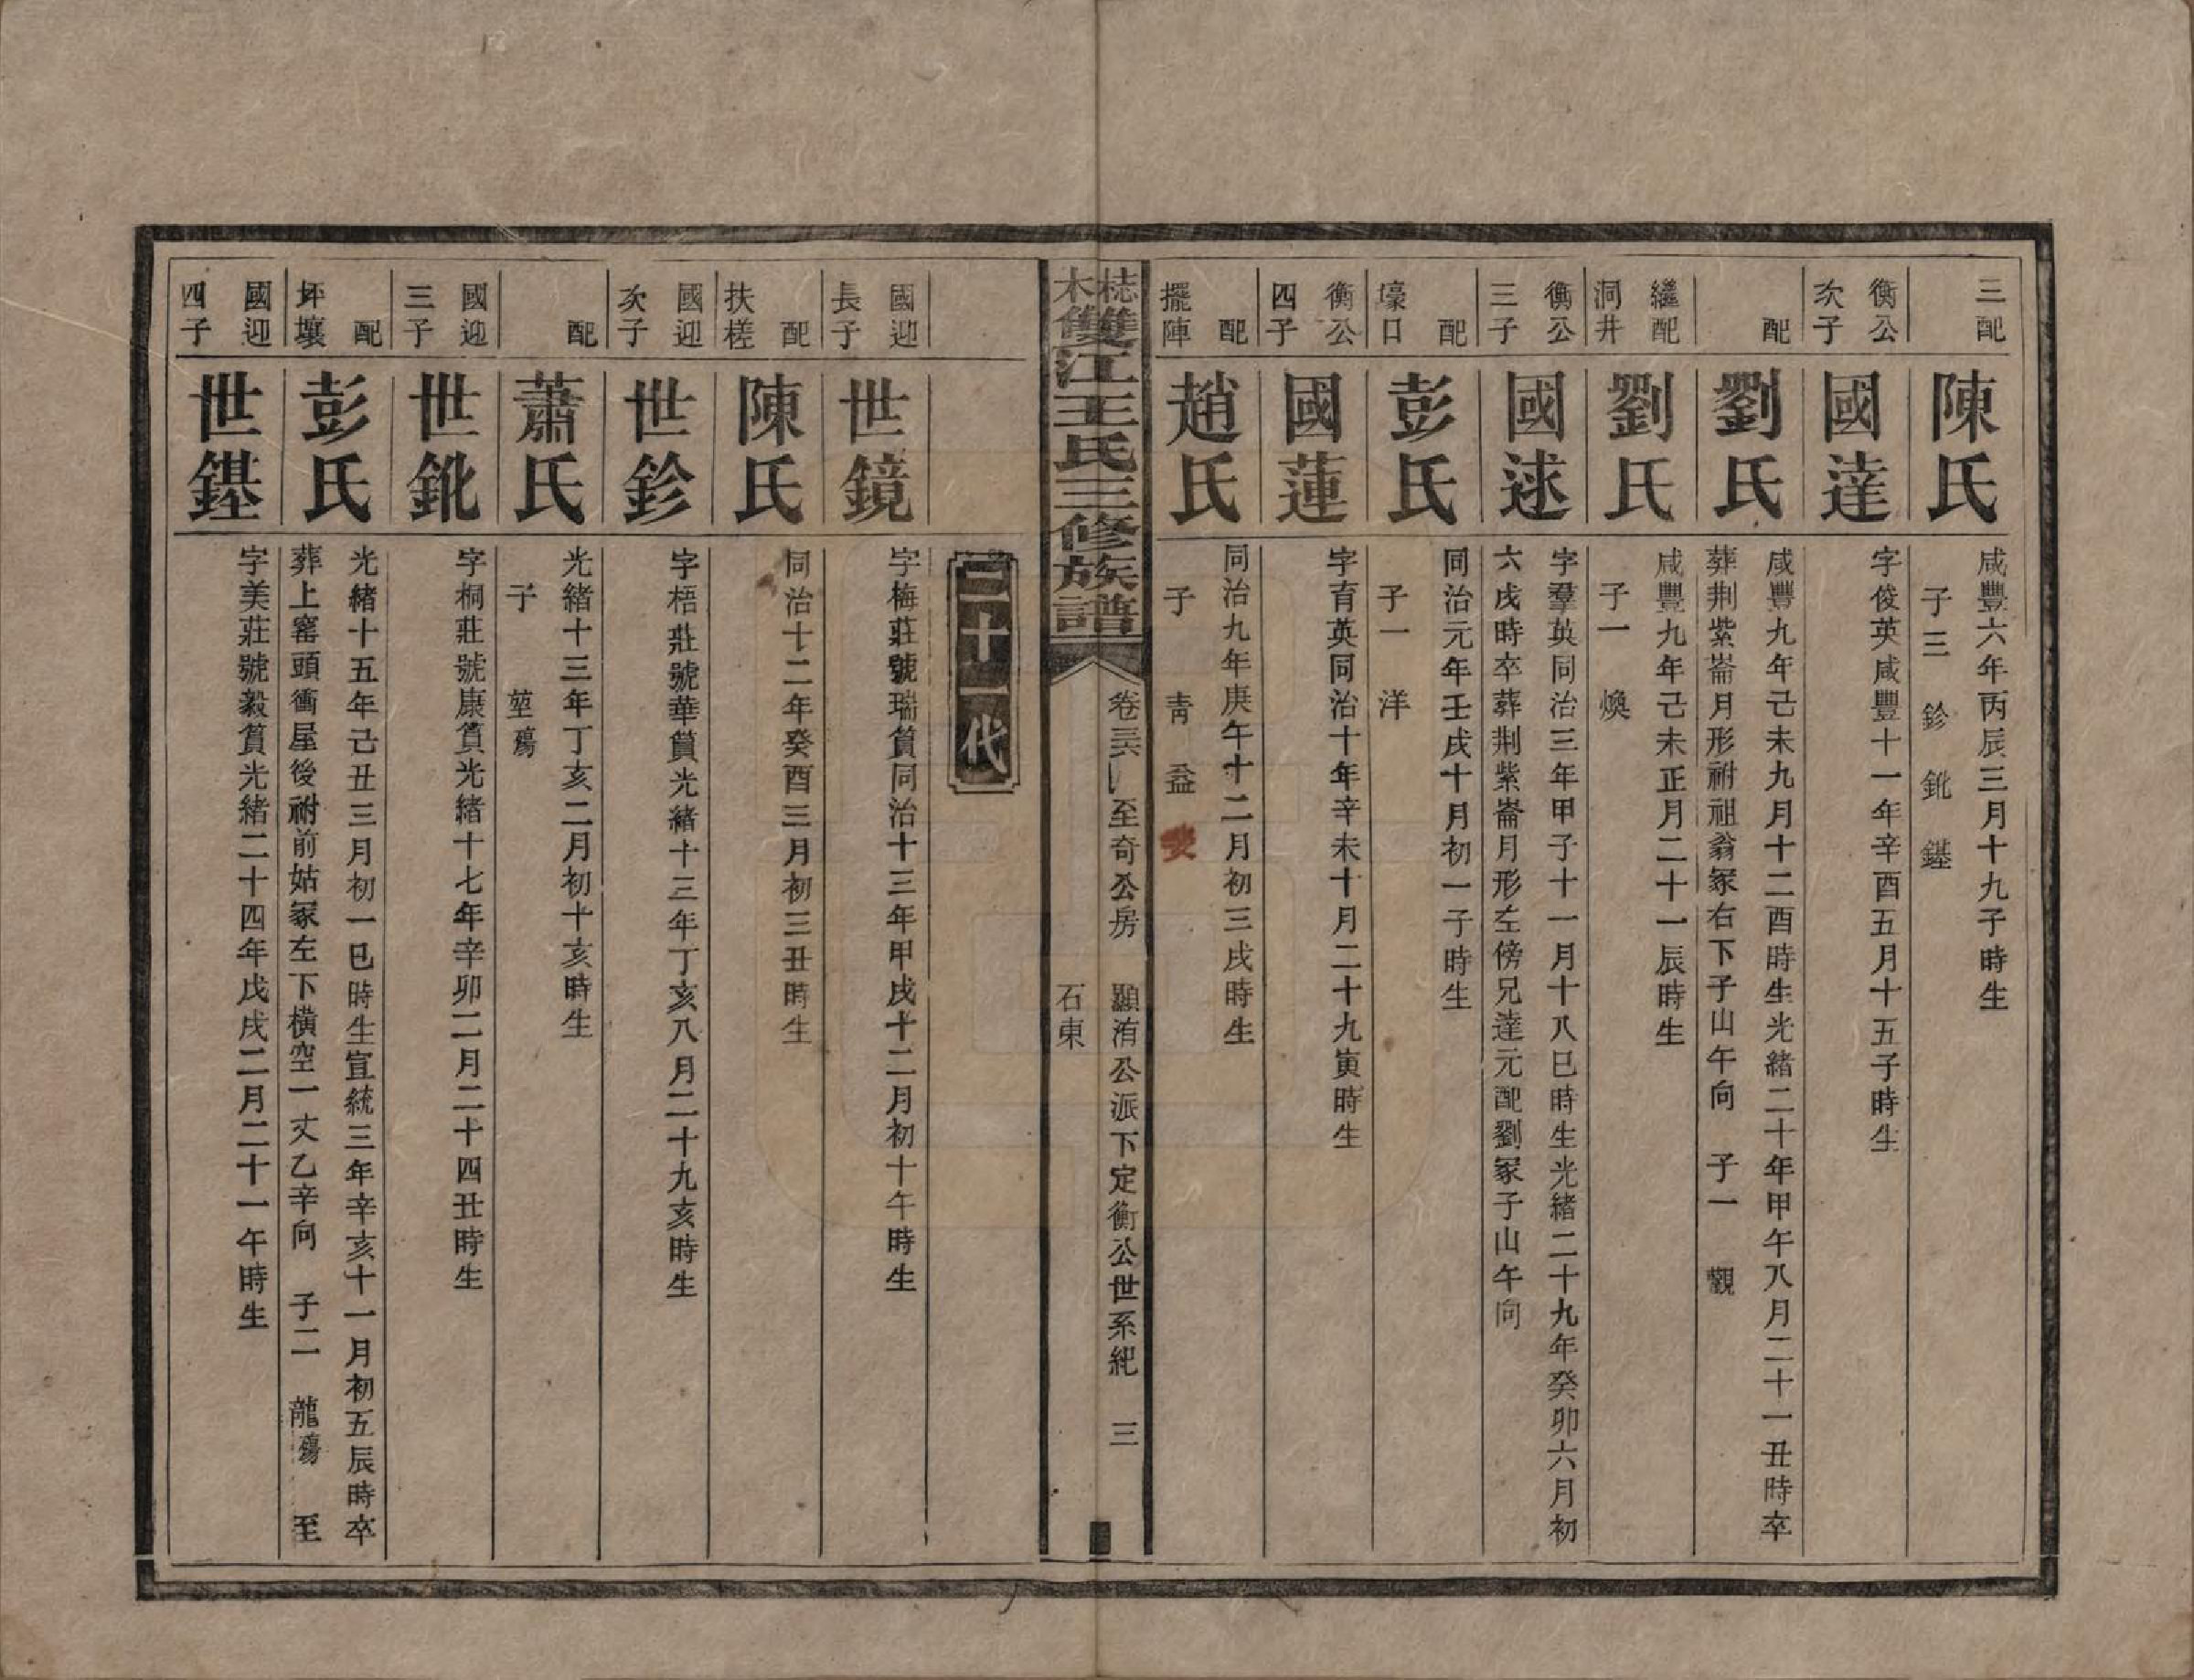 三配
陳氏
咸豐六年丙辰三月十九子時生
子三 鉁 鈋 鏶
衡公次子
國達
字俊英咸豐十一年辛酉五月十五子時生
配
劉氏
咸豐九年己未九月十二酉時生光緒二十年甲午八月二十一丑時卒
葬荆紫崙月形祔祖翁冢右下子山午向 子一 觀
繼配洞井
劉氏
咸豐九年己未正月二十一辰時生
子一 煥
衡公三子
國逑
字羣英同治三年甲子十一月十八巳時生光緒二十九年癸卯六月初
六戌時卒葬荆紫崙月形左傍兄達元配劉冢子山午向
配壕口
彭氏
同治元年壬戌十月初一子時生
子一 洋
衡公四子
國蓮
字育英同治十年辛未十月二十九寅時生
配擺陣
趙氏
同治九年庚午十二月初三戌時生
子 青 益
梽木雙江王氏三修族譜
卷三六 至奇公房 顯洧公派下定衡公世系紀 三
石東
二十一代
國迎長子
世鏡
字梅莊號瑞篔同治十三年甲戌十二月初十午時生
配扶槎
陳氏
同治十二年癸酉三月初三丑時生
國迎次子
世鉁
字梧莊號華篔光緒十三年丁亥八月二十九亥時生
配
蕭氏
光緒十三年丁亥二月初十亥時生
子 堃殤
國迎三子
世鈋
字桐莊號康篔光緒十七年辛卯二月二十四丑時生
配坪壤
彭氏
光緒十五年己丑三月初一巳時生宣統三年辛亥十一月初五辰時卒
葬上窰頭衝屋後祔前姑冢左下橫空一丈乙辛向 子二 龍殤 至
國迎四子
世鏶
字美莊號毅篔光緒二十四年戊戌二月二十一午時生